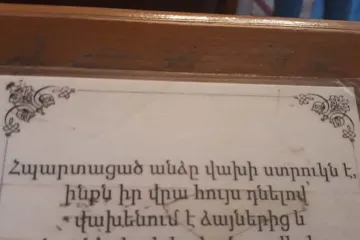 Հպարտացած անձը վախի ստրուկն է,
ինքն իր վրա հույս դնելով՝
վախենում է ձայներից և